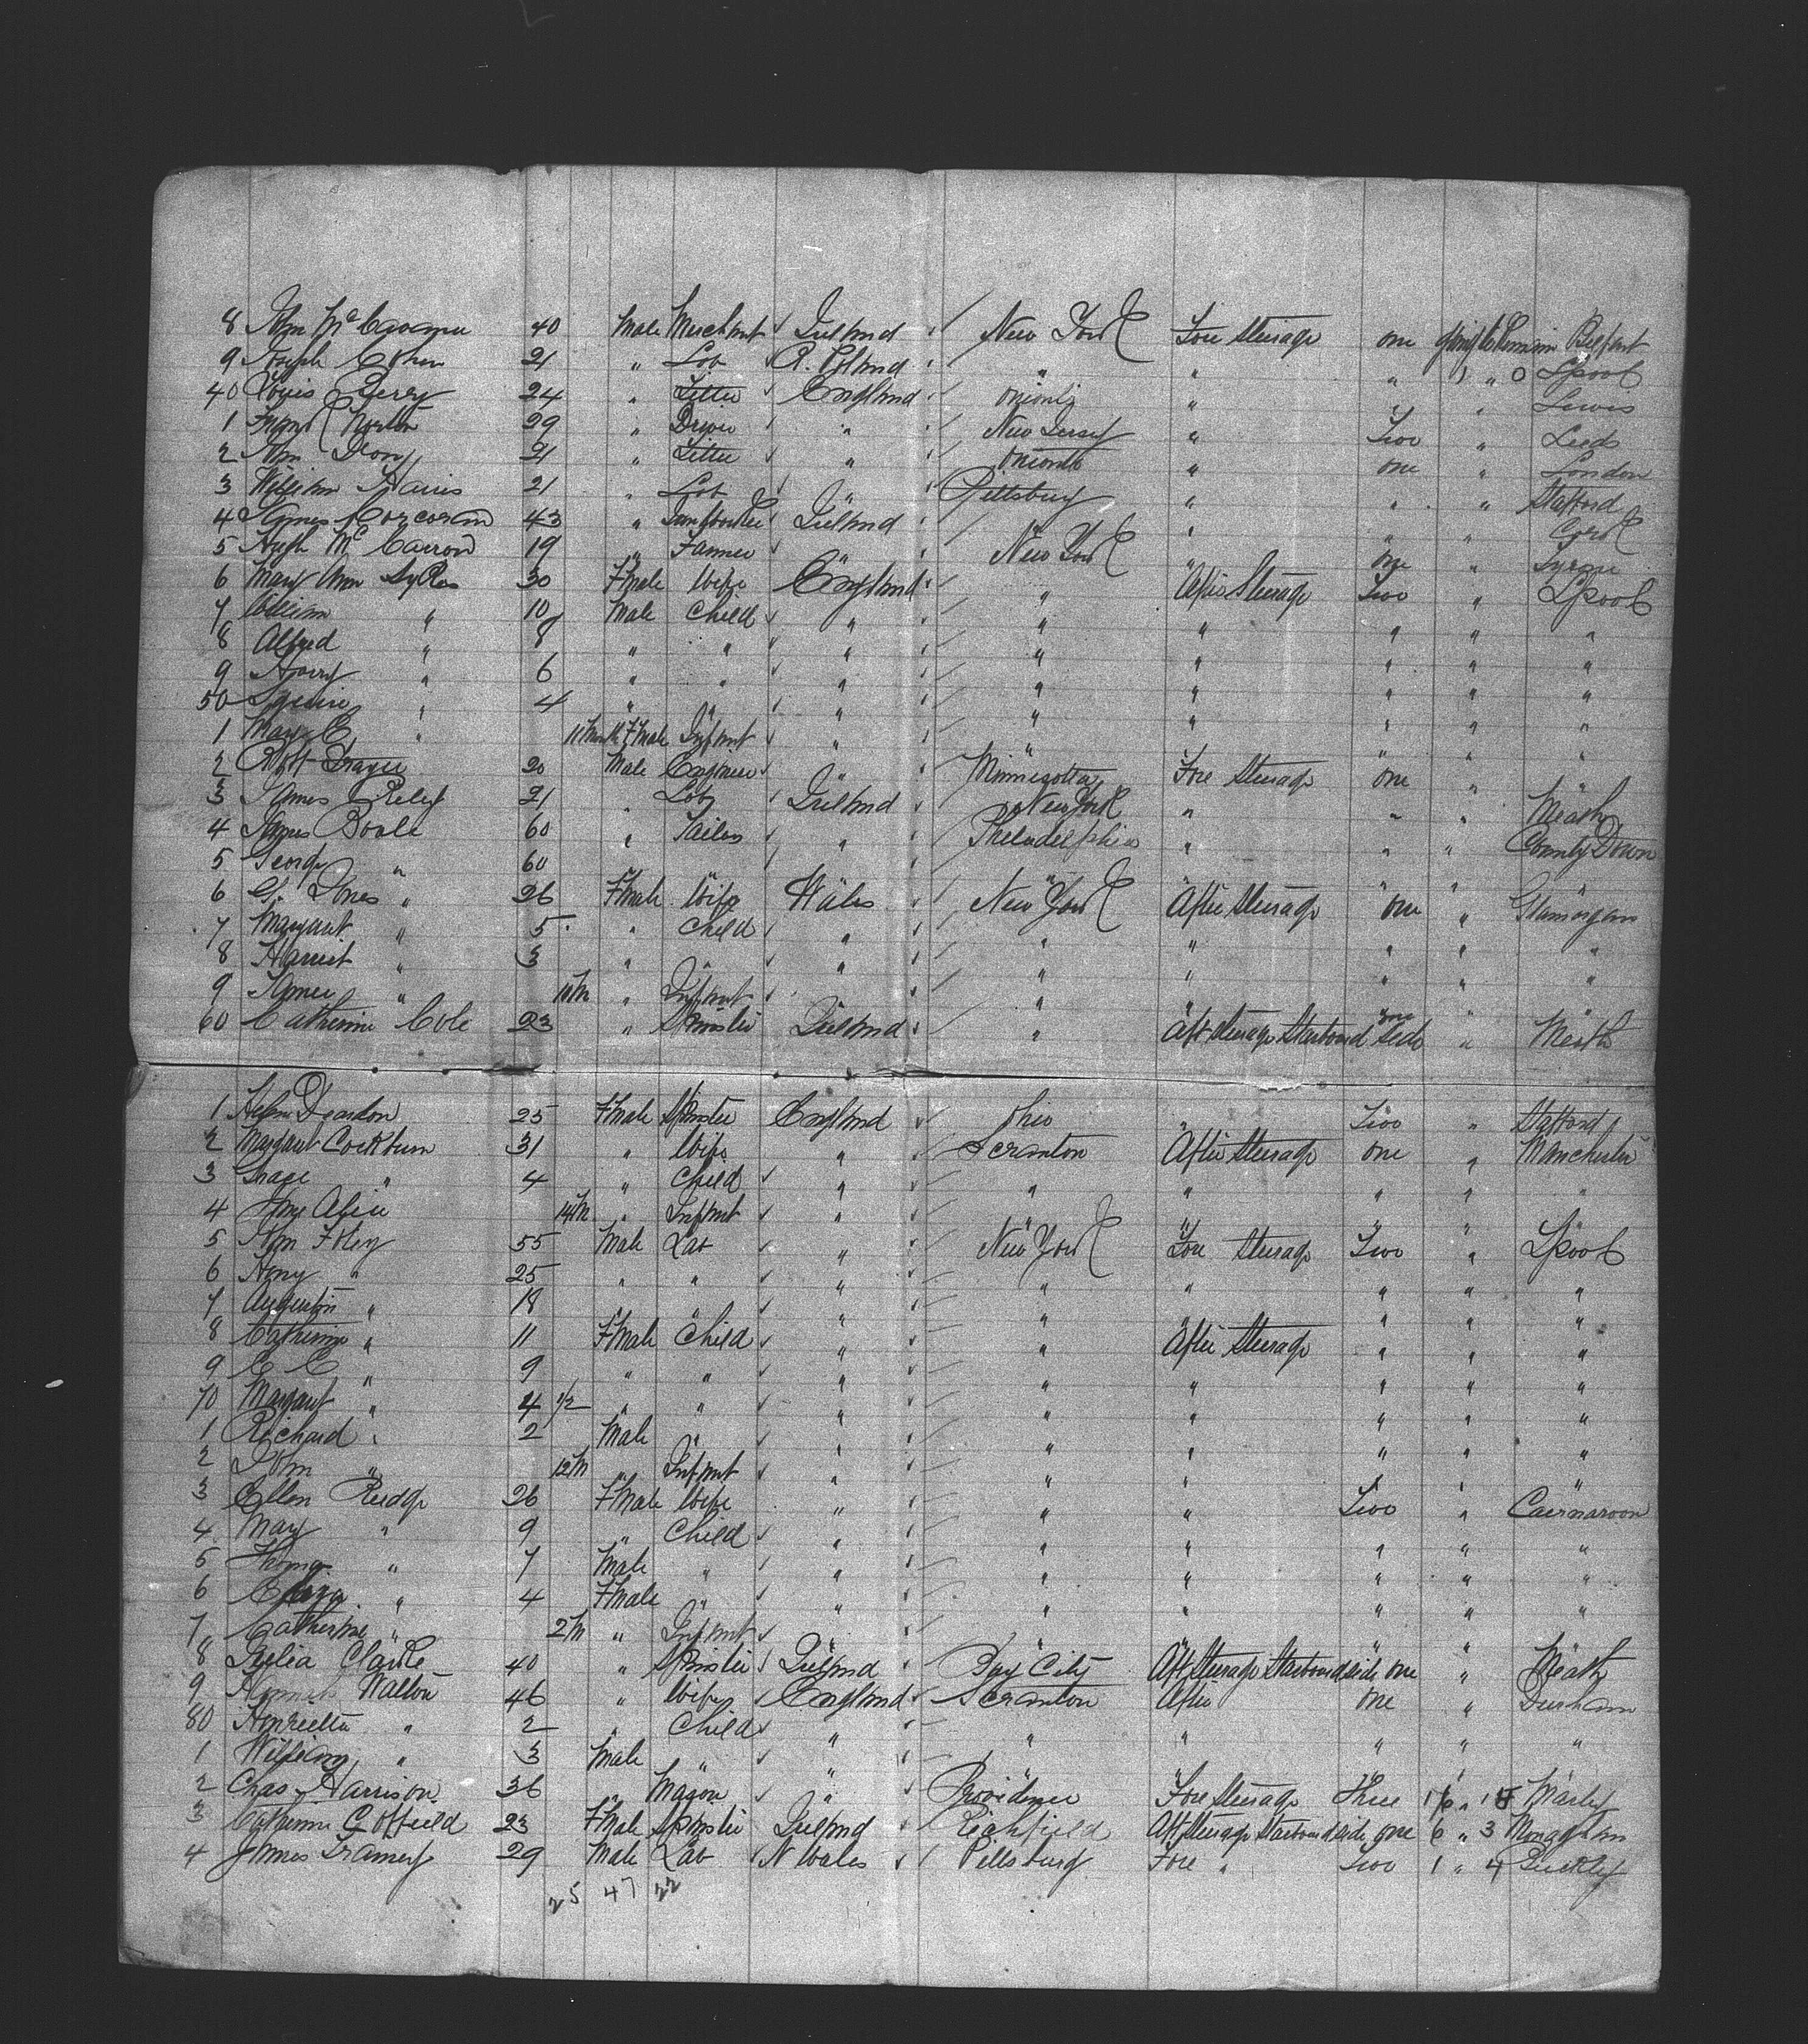 8 John Mc 40 Male Merchant Ireland New York Fore Steerage one Belfast
9 Joseph Cohen 21 " Lab R. Poland " " " Lpool
40 Louis Perry 24 " Fitter England " " Lewis
1 Frank Norton 29 " Driver " New Jersey " Two " Leeds
2 John 21 " Fitter " " one " London
3 William Harris 21 " Lab " Pittsburg " " " Stafford
4 James Corcoran 43 " Ireland " " " " Cork
5 Hugh Mc Carron 19 " Farmer " New York " one " Tyrone
6 Mary Ann Sykes 30 F Male Wife England " After Steerage Two " Lpool
7 William " 10 Male Child " " " " " "
8 Alfred " 8 " " " " " " " "
9 Harry " 6 " " " " " " " "
50 Squire " 4 " " " " " " " "
1 Mary E " 11 Month F Male Infant " " " " " "
2 Robt Frazer 20 Male Engineer " Minnesotta Fore Steerage one "
3 James Reley 21 " Lab Ireland New York " " " Meath
4 James Boale 60 " Tailor " Pheladelphia " " " County Down
5 George " 60 " " " " " " " "
6 G. Jones " 26 F Male Wife Wales New York After Steerage one " Glamorgan
7 Margaret " 5 " Child " " " " " "
8 Harriet " 3 " " " " " " " "
9 James " 10 M " Infant " " " " " "
60 Catherine Cole 23 " Spinster Ireland " Aft Steerage Starboard side one " Meath
1 Dearden 25 F Male Spinster England Ohio " Two " Stafford
2 Margaret Cockburn 31 " Wife " Scranton After Steerage one " Manchester
3 Grace " 4 " Child " " " " " "
4 Jane Alice 14 M " Infant " " " " " "
5 John Foley 55 Male Lab " New York Fore Steerage Two " Lpool
6 Henry " 25 " " " " " " " "
7 Augustin " 18 " " " " " " " "
8 Catherine " 11 F Male Child " " After Steerage " " "
9 C C " 9 " " " " " " " "
70 Margaret " 4 1/2 " " " " " " " "
1 Richard " 2 Male " " " " " " "
2 John " 12 M " Infant " " " " " "
3 Ellen Reidge 26 F Male Wife " " " Two " Caernarvon
4 Mary " 9 " Child " " " " " "
5 Thomas " 7 Male " " " " " " "
6 Eliza " 4 F Male " " " " " " "
7 Catherine " 2 M " Infant " " " " " "
8 Julia Clarke 40 " Spinster Ireland Bay City Aft Steerage Starboard side one " Meath
9 Hannah Walton 46 " Wife England Scranton After one " Durham
80 Henrietta " 2 " Child " " " " " "
1 William " 3 Male " " " " " " "
2 Chas Harrison 36 " Mason " Providence Fore Steerage Three 16 " 15 Marley
3 Catherine Coffield 23 F Male Spinster Ireland Richfield Aft Steerage Starboard side one 6 " 3 Monaghan
4 James Tramey 29 Male Lab N Wales Pittsburg Fore " Two 1 " 4 Buckley
25 47 22